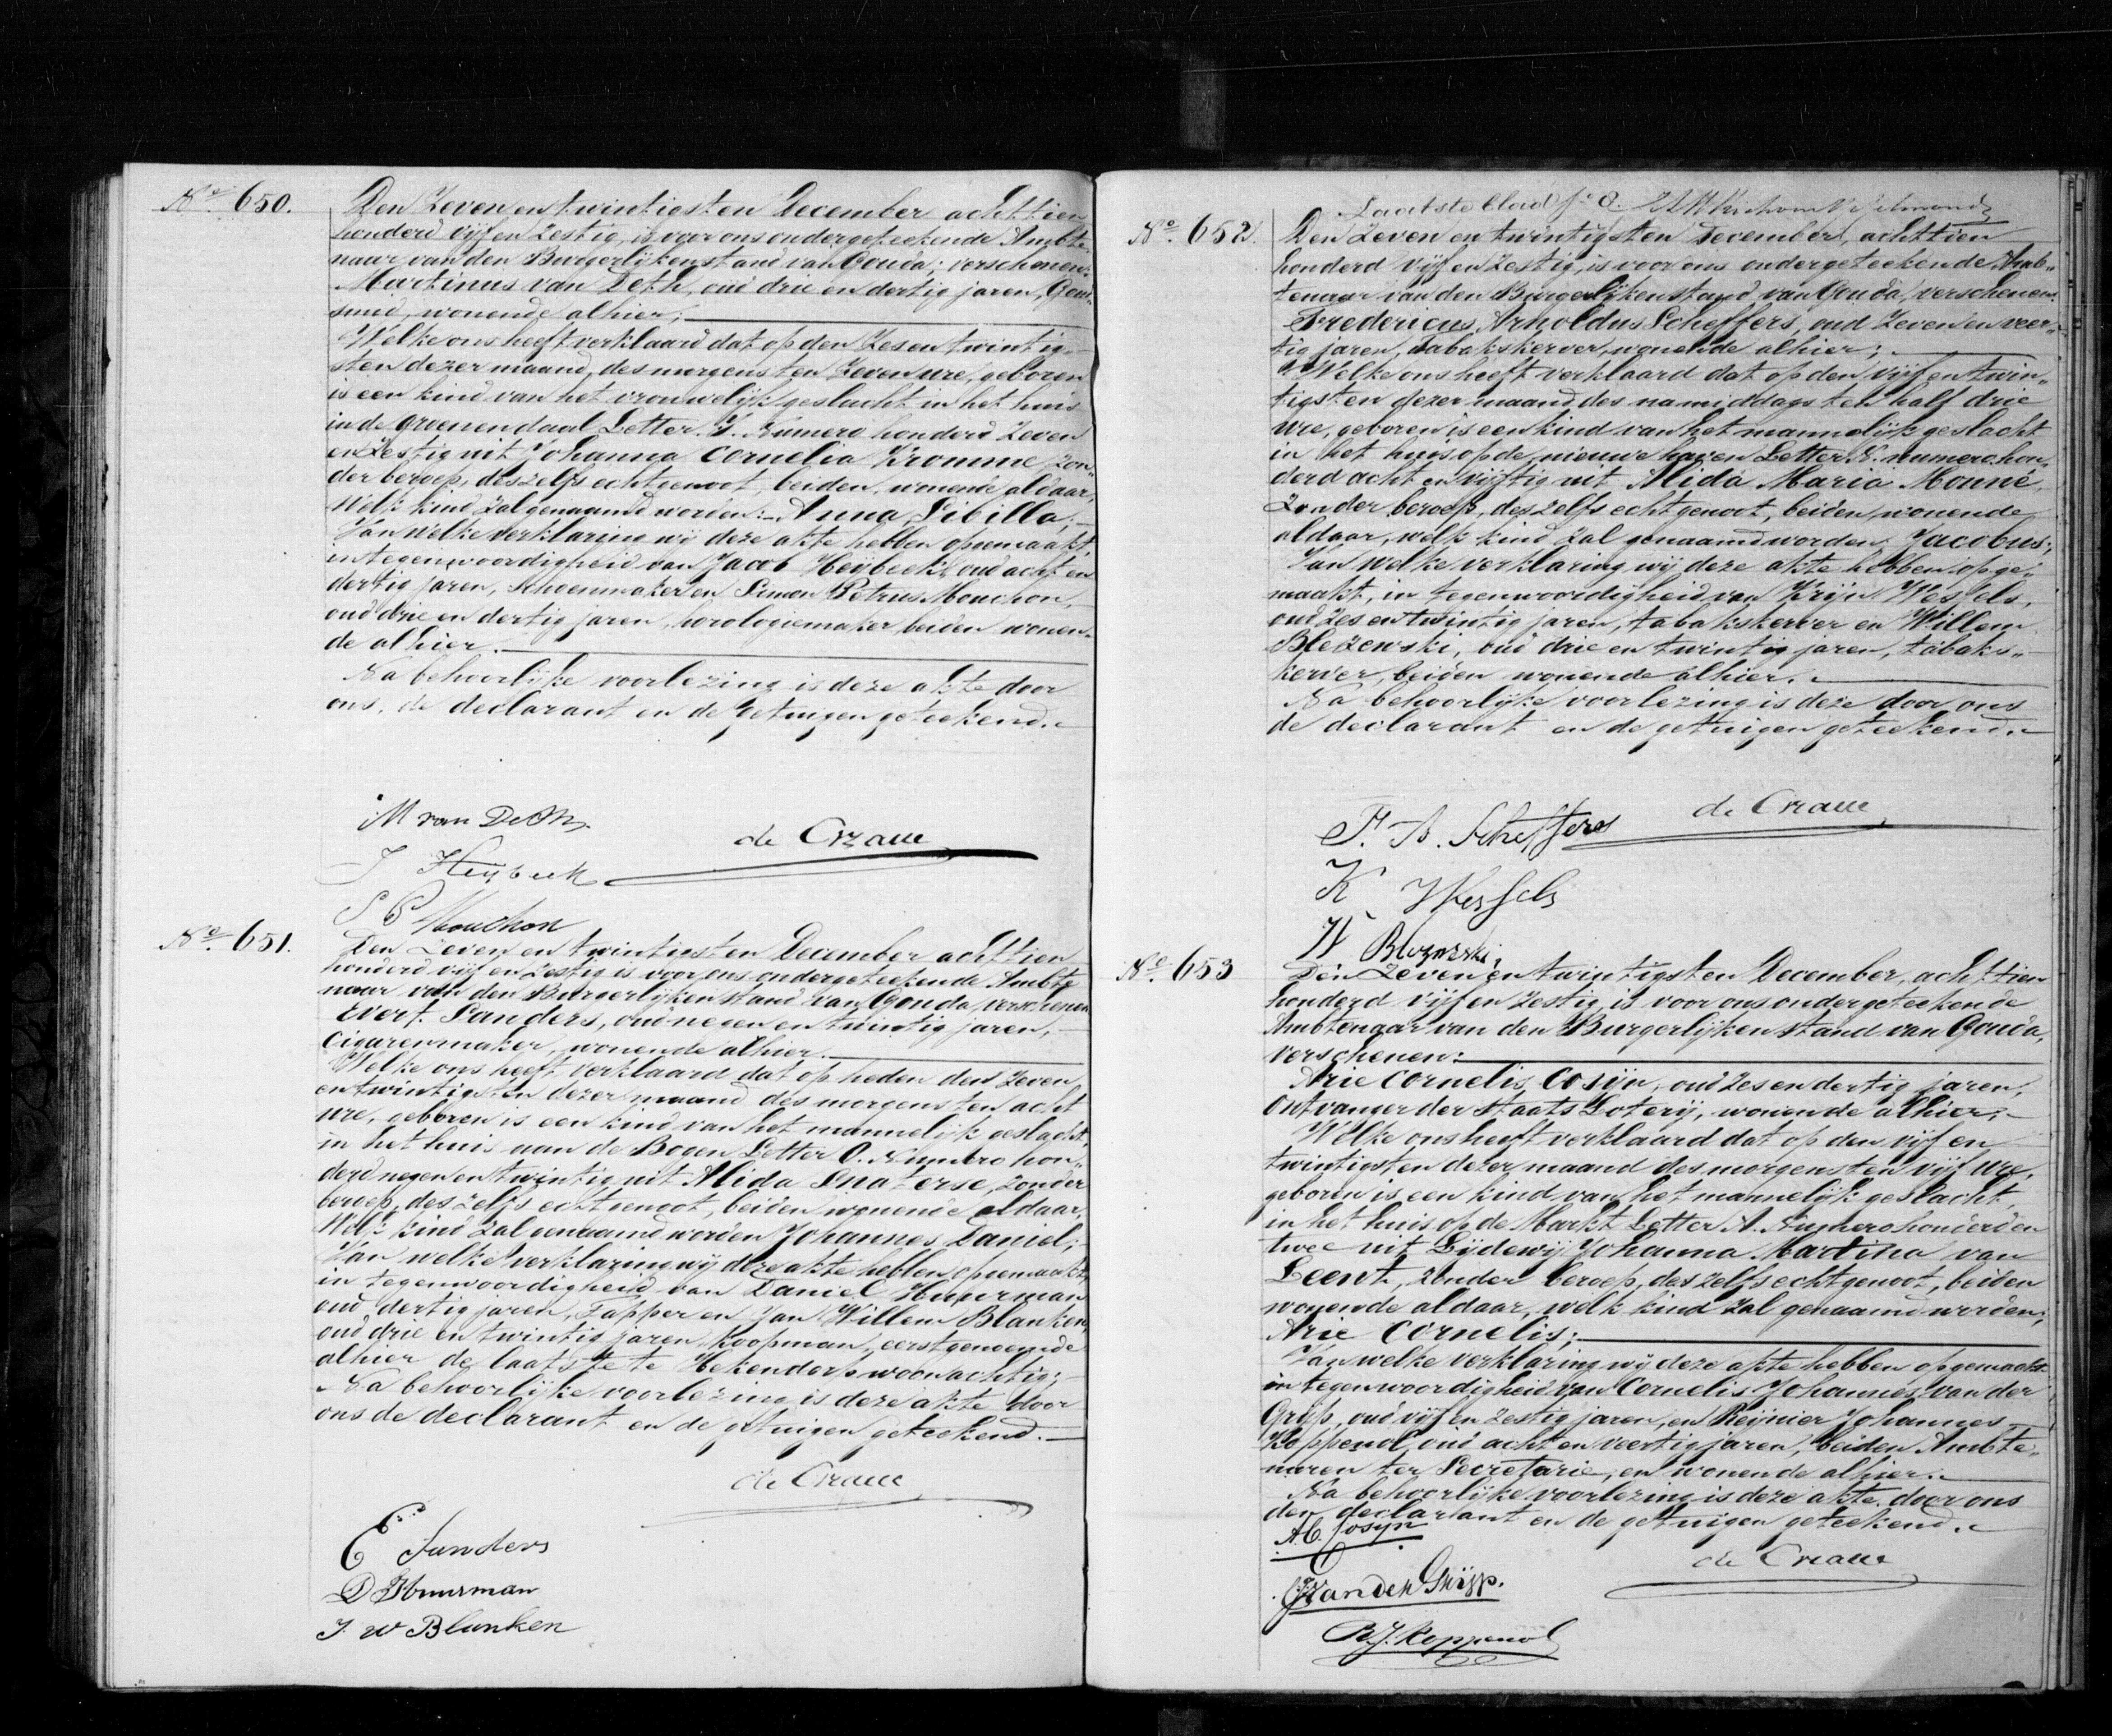 No. 650.
Den Zeven en twintigsten December achttien
honderd vijf en Zestig, is voor ons ondergeteekende Ambte„
naar van den Burgerlijken stand van Gouda, verschenen:
Martinus van Deth, oud drie en dertig jaren,
smid, wonende alhier;
Welke ons heeft verklaard dat op den Zes en twintig„
sten dezer maand, des morgens ten Zeven ure, geboren
is een kind van het vrouwelijk geslacht in het huis
in de Groenendaal Letter I. Numero honderd Zeven
en Zestig uit Johanna Cornelia Kromme zon„
der beroep, deszelfs echtgenoot, beiden, wonende aldaar,
Welk kind zal genaamd worden: Anna Sibilla;
Van welke verklaring wij deze akte hebben opgemaakt,
in tegenwoordigheid van Jacob Heijbeek, oud acht en
dertig jaren, Schoenmaker en Simon Petrus Mouchon,
oud drie en dertig jaren, horologiemaker, beiden wonen„
de alhier.
Na behoorlijke voorlezing is deze akte door
ons, de declarant en de getuigen geteekend.
M van Deth
de Craue
J Heybeek
S P Mouchon
No. 651.
Den Zeven en twintigsten December achttien
honderd vijf en Zestig is voor ons ondergeteekende Ambte
naar van den Burgerlijken stand van Gouda, verschenen
Evert Sanders, oud negen en twintig jaren,
Cigarenmaker, wonende alhier.
Welke ons heeft verklaard dat op heden den Zeven
en twintigsten dezer maand des morgens ten acht
ure, geboren is een kind van het mannelijk geslacht
in het huis aan de Bogen Letter O. Numero hon„
derd negen en twintig uit Alida Snaterse, zonder
beroep, deszelfs echtgenoot, beiden wonende aldaar,
Welk kind zal genaamd worden Johannes Daniel;
Van welke verklaring wij deze akte hebben opgemaakt,
in tegenwoordigheid van Daniel Huurman
oud dertig jaren, Tapper en Jan Willem Blanken,
oud drie en twintig jaren, koopman, eerstgenoemde
alhier de laatste te Hekendorp woonachtig;
Na behoorlijke voorlezing is deze akte door
ons de declarant en de getuigen geteekend.
de Craue
E Sanders
D Huurman
J. W Blanken
Laatste blad
No. 652.
Den Zeven en twintigsten December, achttien
honderd vijf en Zestig, is voor ons ondergeteekende Amb„
tenaar van den Burgerlijken stand van Gouda, verschenen:
Fredericus Arnoldus Scheffers, oud Zeven en veer„
tig jaren, tabakskerver, wonende alhier;
Welke ons heeft verklaard dat op den vijf en twin„
tigsten dezer maand, des namiddags ten half drie
ure, geboren is een kind van het mannelijk geslacht
in het huis op de nieuwe haven Letter N. numero hon„
derd acht en vijftig uit Alida Maria Monné,
Zonder beroep, deszelfs echtgenoot, beiden, wonende
aldaar, welk kind zal genaamd worden Jacobus;
Van welke verklaring wij deze akte hebben opge„
maakt, in tegenwoordigheid van Krijn Wessels,
oud Zes en twintig jaren, tabakskerver en Willem
Blezenski, oud drie en twintig jaren, tabaks„
kerver, beiden wonende alhier.
Na behoorlijke voorlezing is deze door ons
de declarant en de getuigen geteekend.
de Craue
F. A. Scheffers
K Wessels
W
No. 653
Den Zeven en twintigsten December, achttien
honderd vijf en Zestig, is voor ons ondergeteekende
Ambtenaar van den Burgerlijken stand van Gouda,
verschenen:
Arie Cornelis Cosijn, oud Zes en dertig jaren,
Ontvanger der Staats Loterij, wonende alhier;
Welke ons heeft verklaard dat op den vijf en
twintigsten dezer maand des morgens ten vijf ure,
geboren is een kind van het mannelijk geslacht,
in het huis op de Markt Letter A. Numero honderd en
twee uit Lijdewij Johanna Martina van
Leent, zonder beroep, deszelfs echtgenoot, beiden
wonende aldaar, welk kind zal genaamd worden,
Arie Cornelis;
Van welke verklaring wij deze akte hebben opgemaakt
in tegenwoordigheid van Cornelis Johannes van der
Grijp, oud vijf en Zestig jaren, en Reijnier Johannes
Koppenol, oud acht en veertig jaren, beiden Ambte„
naren ter Secretarie, en wonende alhier.
Na behoorlijke voorlezing is deze akte door ons
den declarant en de getuigen geteekend.
A.C. Cosijn
de Craue
van der Grijp.
R.J. Koppenol